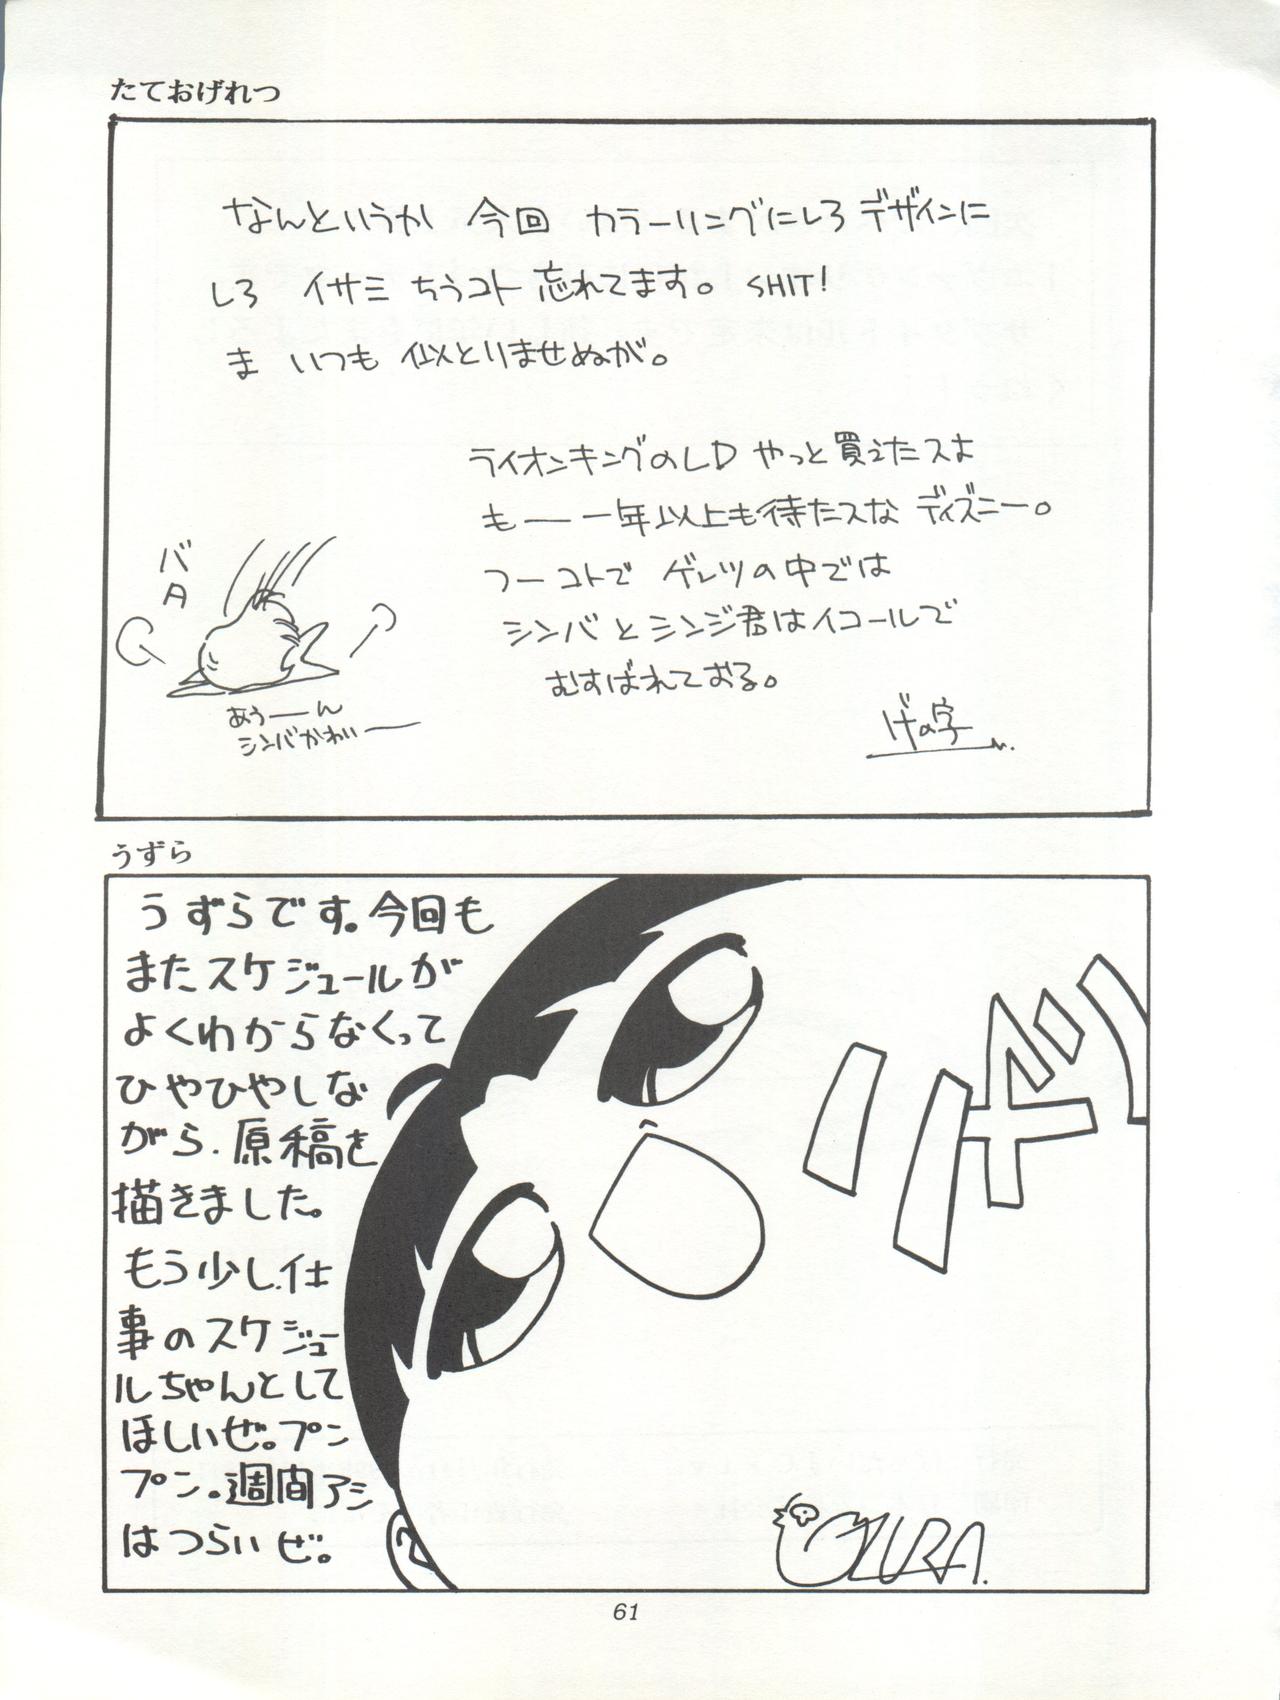 たておげれつ
なんというか 今回 カラーリングにしろ デザインに
しろ イサミ ちうコト 忘れてます。 SHIT!
ま いつも 似とりませぬが。
ライオンキングのLD やっと買えたスよ
も――一年以上も待たスな ディズニー。
つーコトで ゲレツの中では
シンバとシンジ君はイコールで
むすばれておる。
バタ
あう――ん
シンバかわいー
げの字
うずら
うずらです。今回も
またスケジュールが
よくわからなくって
ひやひやしな
がら、原稿を
描きました。
もう少し、仕
事のスケジュー
ルちゃんとして
ほしいぜ。プン
プン。週間アシ
はつらいぜ。
UZURA.
61